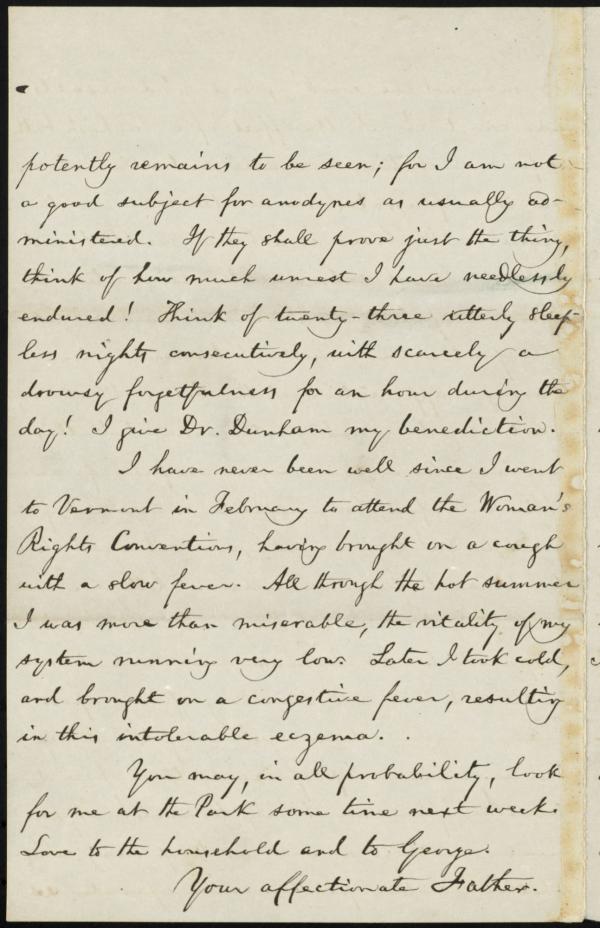 potently remains to be seen; for I am not
a good subject for anodynes as usually ad-
ministered. If they shall prove just the thing,
think of how much unrest I have needlessly
endured! Think of twenty-three utterly sleep-
less nights consecutively, with scarcely a
drowsy forgetfulness for an hour during the
day! I give Dr. Dunham my benediction.
I have never been well since I went
to Vermont in February to attend the Woman's
Rights Conventions, having brought on a cough
with a slow fever. All through the hot summer
I was more than miserable, the vitality of my
system running very low. Later I took cold,
and brought on a congestive fever, resulting
in this intolerable eczema.
You may, in all probability, look
for me at the Park some time next week.
Love to the household and to George.
Your affectionate Father.